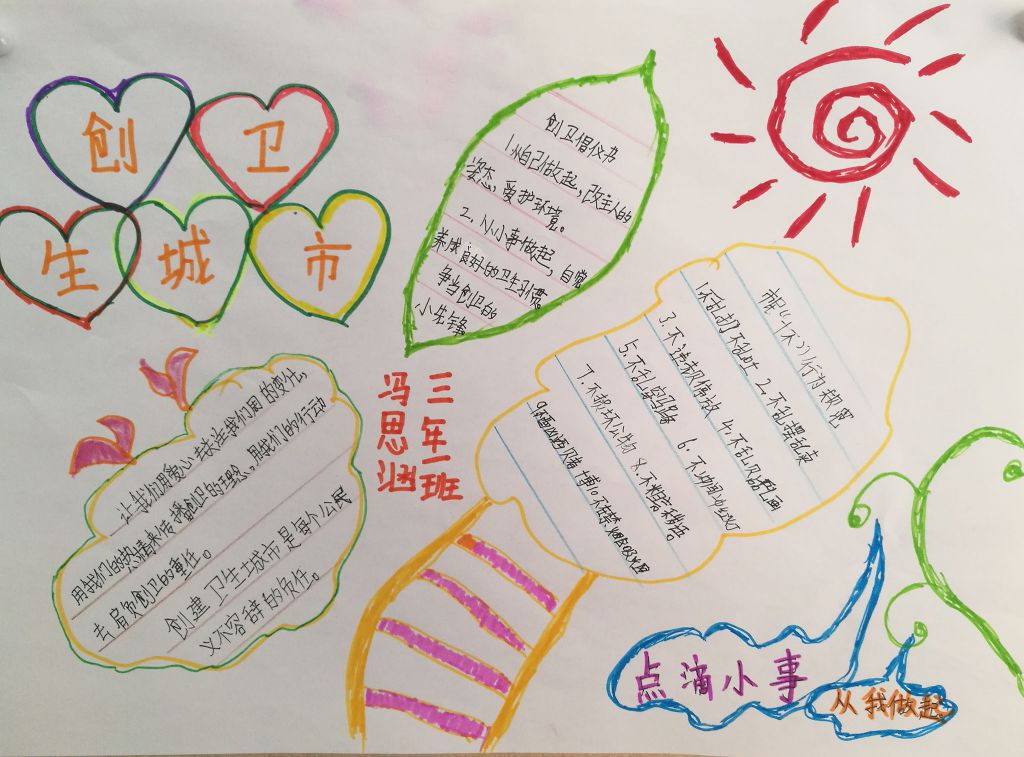 创 卫
生 城 市
创卫倡仪书
1.从自己做起,改主人的
姿态,爱护环境。
2.从小事做起,自觉
养成良好的卫生习惯
争当创卫的
小先锋
三年一班
冯思涵
市民"十不"行为规范
1.不乱扔不乱吐 2.不乱摆乱
3.不违规停放 4.不乱贴乱画
5.不乱穿马路 6.不闯红灯
7.不损坏公物 8.不粗言秽语。
让我们用爱心去关注我们周的变化,
用我们的热情来传播创卫的理念,用我们的行动
去肩负创卫的重任。
创建卫生城市是每个公民
义不容辞的负任。
点滴小事
从我做起。